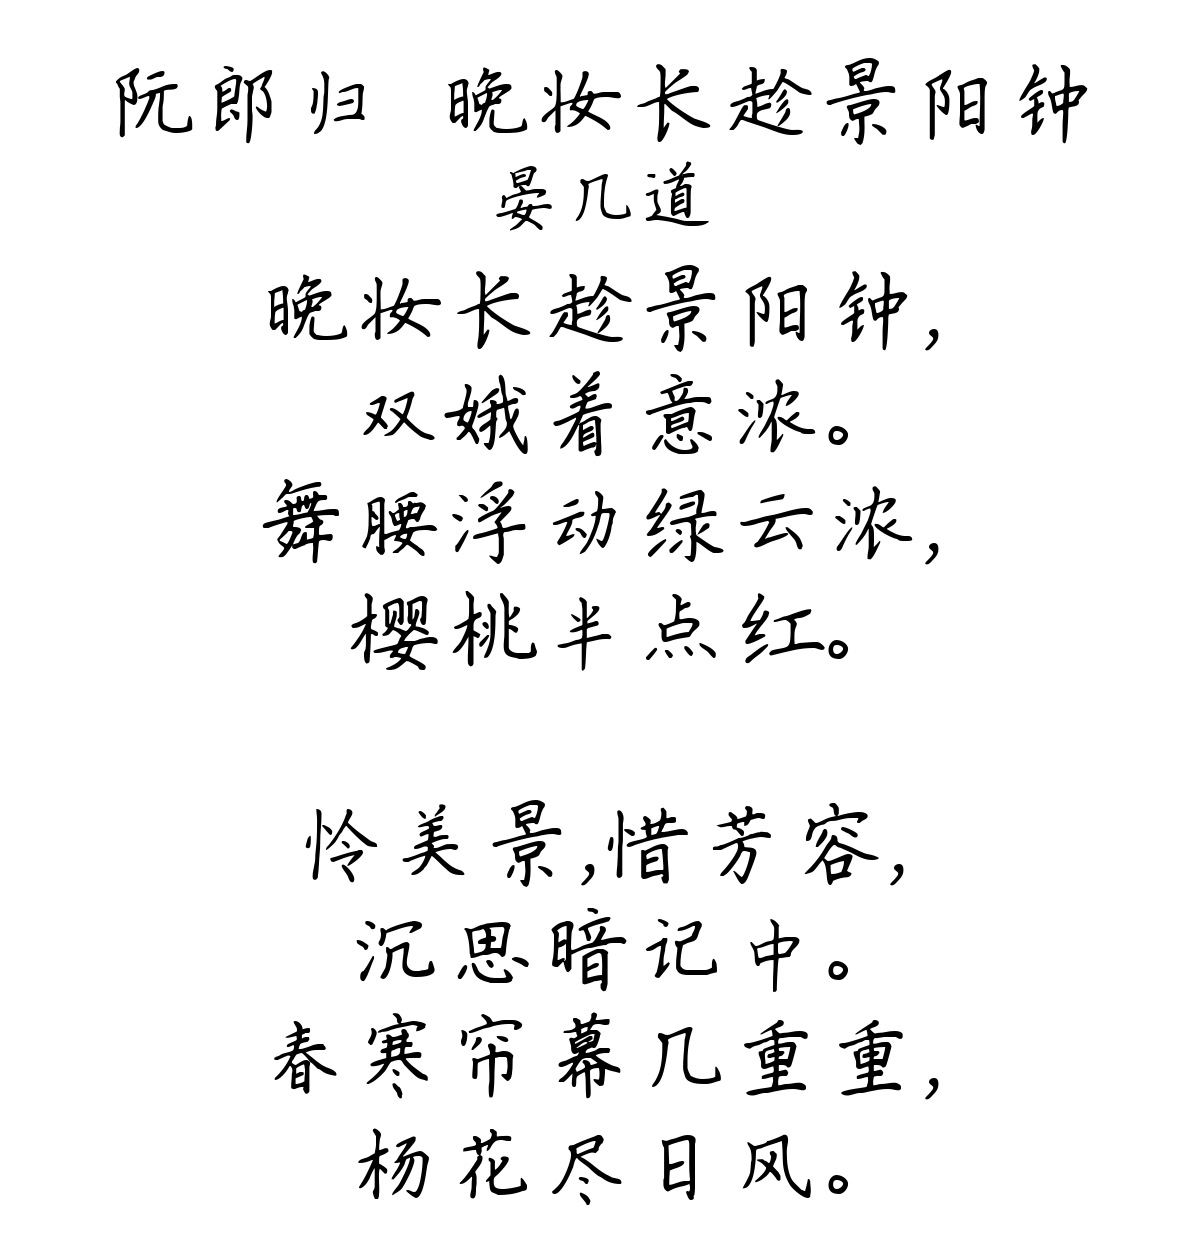 阮郎归 晚妆长趁景阳钟
晏几道
晚妆长趁景阳钟,
双娥着意浓。
舞腰浮动绿云浓,
樱桃半点红。
怜美景,惜芳容,
沉思暗记中。
春寒帘幕几重重,
杨花尽日风。